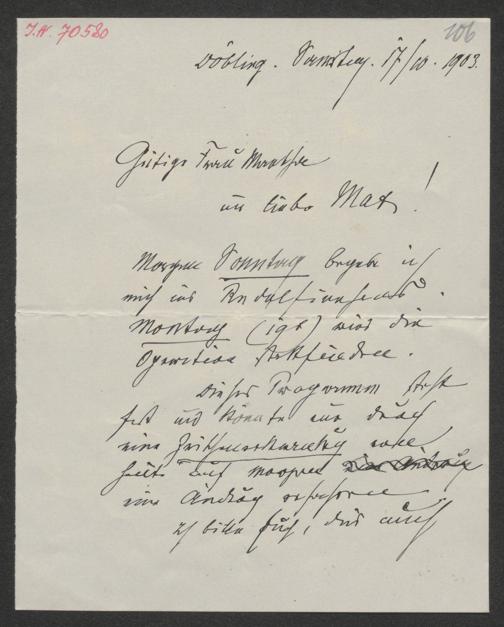 I.N. 70580
106
Döbling. Samstag. 17/10. 1903.
Gütige Frau Marthe
und liebe Max!
Morgen Sonntag begebe ich
mich ins Rudolfinerhaus.
Montag (19t) wird die
Operation stattfinden.
Dieses Programm steht
fest und könnte nur durch
eine
heute auf morgen
eine Änderung erfahren
Ich bitte Euch, dies auch